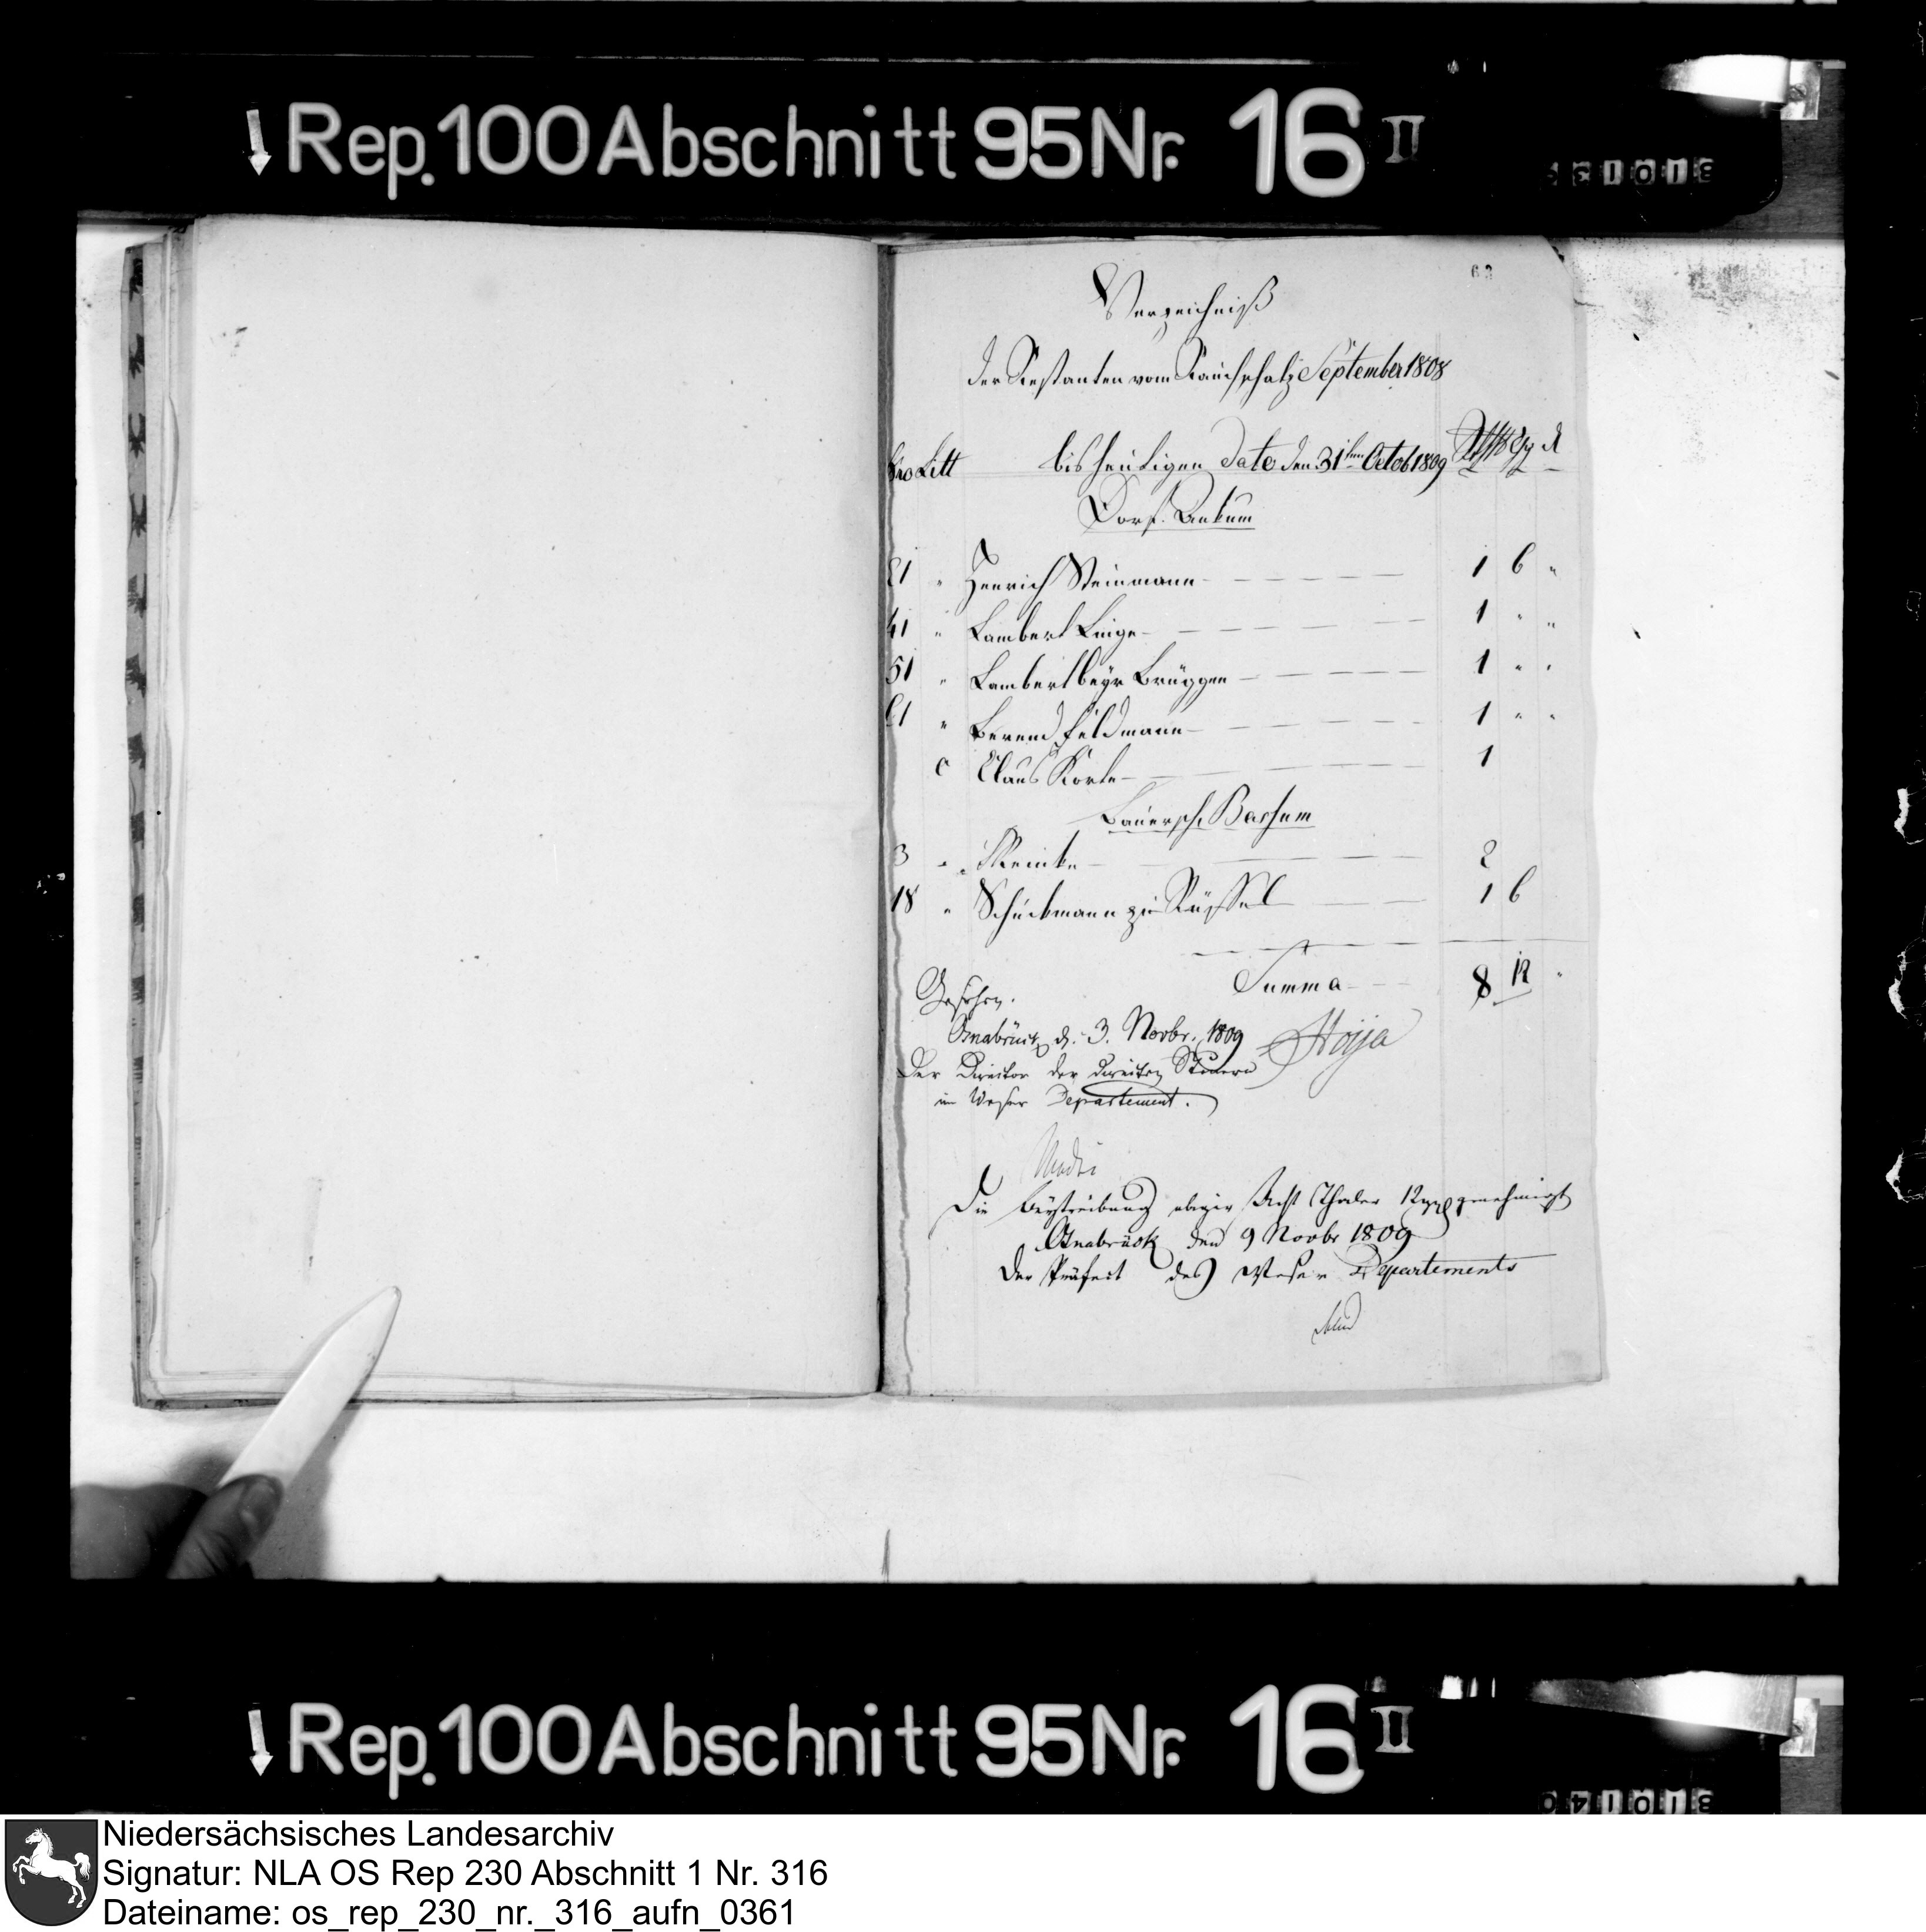 Rep. 100 Abschnitt 95 Nr. 16 II
63
Verzeichniß
der Restanten vom Rauchschatz September 1808
Nro Litt bis heutigen Dato den 31ten Octob 1809
Dorf. Ankum
21 " Henrich Steinmann 1 6 "
41 " Lambert Linge 1 " "
51 " Lambert beÿr Brüggen 1 " "
61 " Berend Feldmann 1 " "
c Claus Korte 1
Bauersch. Bersum
3 " Reinke 2
18 " Schückmann zu Rüssel 1 6
Summa 8 12 "
Gesehen.
Osnabrück d. 3. Novbr. 1809
Der Director der directen Steuern
im Weser Departement.
Die Beÿtreibung obiger Acht Thaler 12 genehmigt
Osnabrück den 9 Novbr 1809
Der Präfect des Weser Departements
Rep. 100 Abschnitt 95 Nr. 16 II
Niedersächsisches Landesarchiv
Signatur: NLA OS Rep 230 Abschnitt 1 Nr. 316
Dateiname: os_rep_230_nr._316_aufn_0361